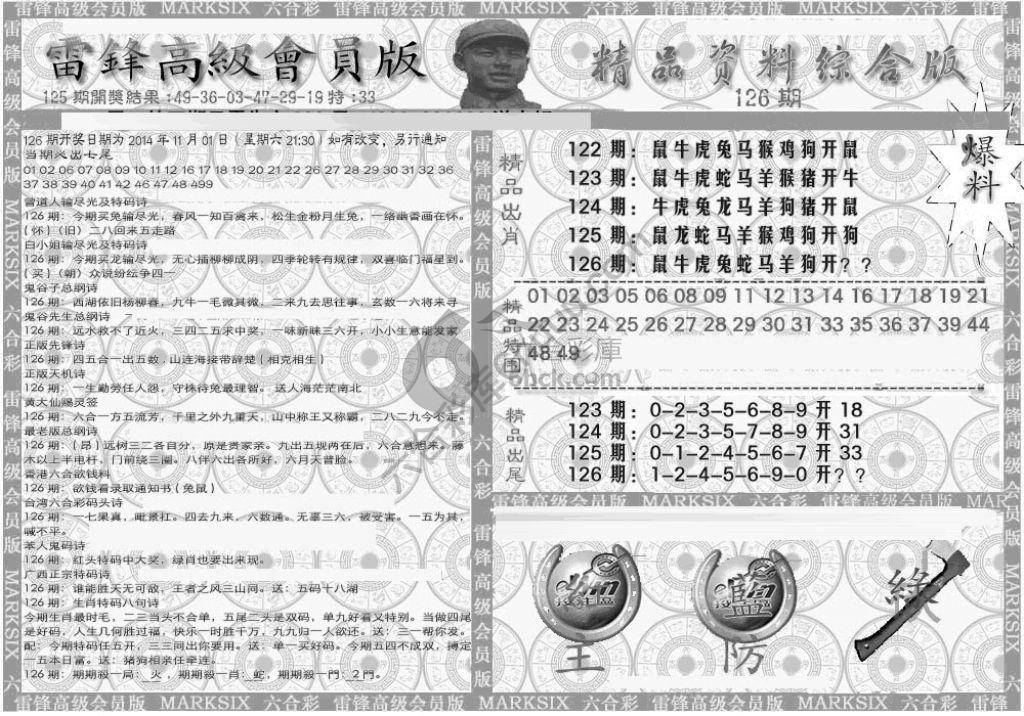 雷锋高级会员版 MARKSIX 六合彩 雷锋高级会员版 MARKSIX 六合彩 雷锋高级会员版 MARKSIX 六合彩 雷锋
雷鋒高級會員版
精品资料综合版
125期開獎結果:49-36-03-47-29-19特:33
126期
126期开奖日期为2014年11月01日(星期六21:30)如有改变,另行通知
当期必出七尾
01 02 06 07 08 09 10 11 12 15 16 17 18 19 20 21 22 26 27 28 29 30 31 32 36
37 38 39 40 41 42 46 47 48 499
曾道人输尽光及特码诗
126期:今期买兔输尽光,春风一知百离来,松生金粉月生兔,一络幽香画在怀。
(怀)(旧)二八回来五走路
白小姐输尽光及特码诗
126期:今期买龙输尽光,无心插柳柳成阴,四季轮转有规律,双喜临门福星到。
(买)(朝)众说纷纭争四一
鬼谷子总纲诗
126期:西湖依旧杨柳春,九牛一毛微其微,二来九去思往事,玄数一六将来寻
鬼谷先生总纲诗
126期:远水救不了近火,三四二五求中奖,一味新昧三六开,小小生意能发家
正版先锋诗
126期:四五合一出五数,山连海接带辞楚(相克相生)
正版天机诗
126期:一生勤劳任人怨,守株待兔最理智。送人海茫茫南北
黄大仙赐灵签
126期:六合一方五流芳,千里之外九重天,山中称王又称霸,二八二九今不走。
最老版总纲诗
126期:(昂)远树三二各自分,原是贵家亲。九出五现两在后,六合意想来。藤
木以上半电杆,门前绕三圈。八伴六出各所好,六月天普脸。
香港六合欲钱料
126期:欲钱看录取通知书(兔鼠)
台湾六合彩码头诗
126期:一七果真,毗景扛。四去九来,六数通。无辜三六,被受害。一五为其,
喊不平。
苯人鬼码诗
126期:红头特码中大奖,绿肖也要出来现。
广西正宗特码诗
126期:谁能胜天无可敌,王者之风三山间。送:五码十八湖
126期:生肖特码八句诗
今期生肖最时毛,二三当头不合单,五尾二头是双码,单九好看又特别。当做四尾
是好码,人生几何胜过福,快乐一时胜千万,九九归一人欲还。送:三一帮你发。
配:今期特码任五开,三三同出你要用。送:单一买好码。今期五四不成双,搏定
一五本日富。送:猪狗相亲任牵连。
126期:期期殺一局:火,期期殺一肖:蛇,期期殺一門:2門。
精品出肖
122期:鼠牛虎兔马猴鸡狗开鼠
123期:鼠牛虎蛇马羊猴猪开牛
124期:牛虎兔龙马羊狗猪开鼠
125期:鼠龙蛇马羊猴鸡狗开狗
126期:鼠牛虎兔蛇马羊狗开??
爆料
精品特围
01 02 03 05 06 08 09 11 12 13 14 16 17 18 19 21
22 23 24 25 26 27 28 29 30 31 33 35 36 37 39 44
48 49
精品出尾
123期:0-2-3-5-6-8-9开18
124期:0-2-3-5-6-7-8-9开31
125期:0-1-2-4-5-6-7开33
126期:1-2-4-5-6-9-0开??
雷锋高级会员版 MARKSIX 六合彩 雷锋高级会员版 MARKSIX
主
防
藍
綠
雷锋高级会员版 MARKSIX 六合彩 雷锋高级会员版 MARKSIX 六合彩 雷锋高级会员版 MARKSIX 六合彩 雷锋